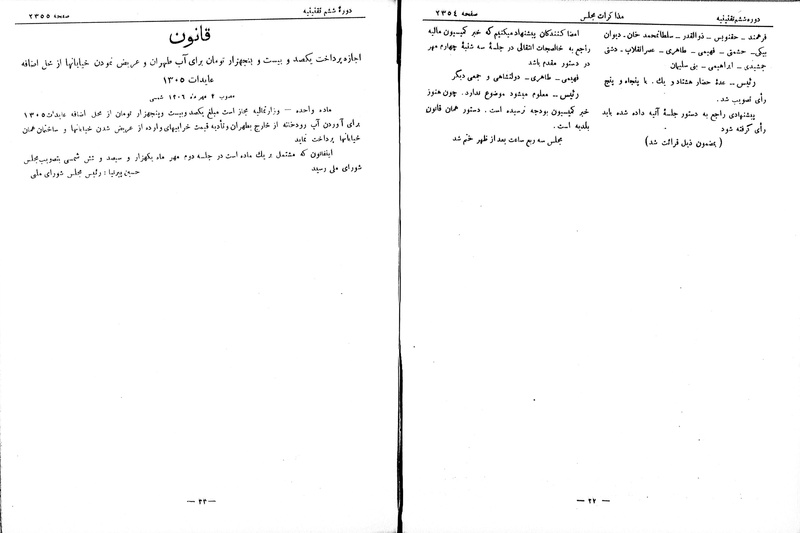 دوره ششم تقنینیه
مذاکرات مجلس
صفحه ۲۳۵۴
فرهمند ـ حقنویس ـ ذوالقدر ـ سلطانمحمد خان ـ دیوان
بیگی ـ حشمتی ـ فهیمی ـ طاهری ـ عصرانقلاب ـ دشتی
جمشیدی ـ ابراهیمی ـ بنی سلیمان
رئیس ـ عدهٔ حضار هشتاد و یك ـ با پنجاه و پنج
رأی تصویب شد.
پیشنهادی راجع به دستور جلسهٔ آتیه داده شده باید
رأی گرفته شود
( بمضمون ذیل قرائت شد )
امضا کنندگان پیشنهاد میکنیم که خبر کمیسیون مالیه
راجع به خالصجات انتقالی در جلسهٔ سه شنبهٔ چهارم مهر
در دستور مقدم باشد
فهیمی ـ طاهری ـ دولتشاهی و جمعی دیگر
رئیس ـ معلوم میشود موضوع ندارد. چون هنوز
خبر کمیسیون بودجه نرسیده است. دستور همان قانون
بلدیه است.
مجلس سه ربع ساعت بعد از ظهر ختم شد
— ۲۲ —
دورهٔ ششم تقنینیه
صفحه ۲۳۵۵
قانون
اجازه پرداخت یکصد و بیست و پنجهزار تومان برای آب طهران و عریض نمودن خیابانها از محل اضافه
عایدات ۱۳۰۵
مصوب ۲ مهر ماه ۱۳۰۶ شمسی
ماده واحده — وزارتمالیه مجاز است مبلغ یکصد وبیست وپنجهزار تومان از محل اضافه عایدات ۱۳۰۵
برای آوردن آب رودخانه از خارج بطهران وتأدیه قیمت خرابیهای وارده از عریض شدن خیابانها و ساختمان همان
خیابانها پرداخت نماید
اینقانون که مشتمل و یك ماده است در جلسه دوم مهر ماه یکهزار و سیصد و شش شمسی بتصویب مجلس
شورای ملی رسید
حسین پیرنیا : رئیس مجلس شورای ملی
— ۲۳ —